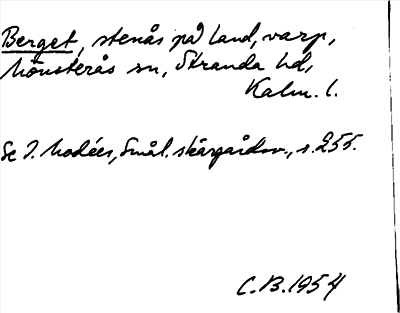 Berget, stenås på land, varp,
Mönsterås sn, Stranda hd,
Kalm. l.
Se I. Modéer, Smål. skärgårdsn., s. 255.
C.B. 1954